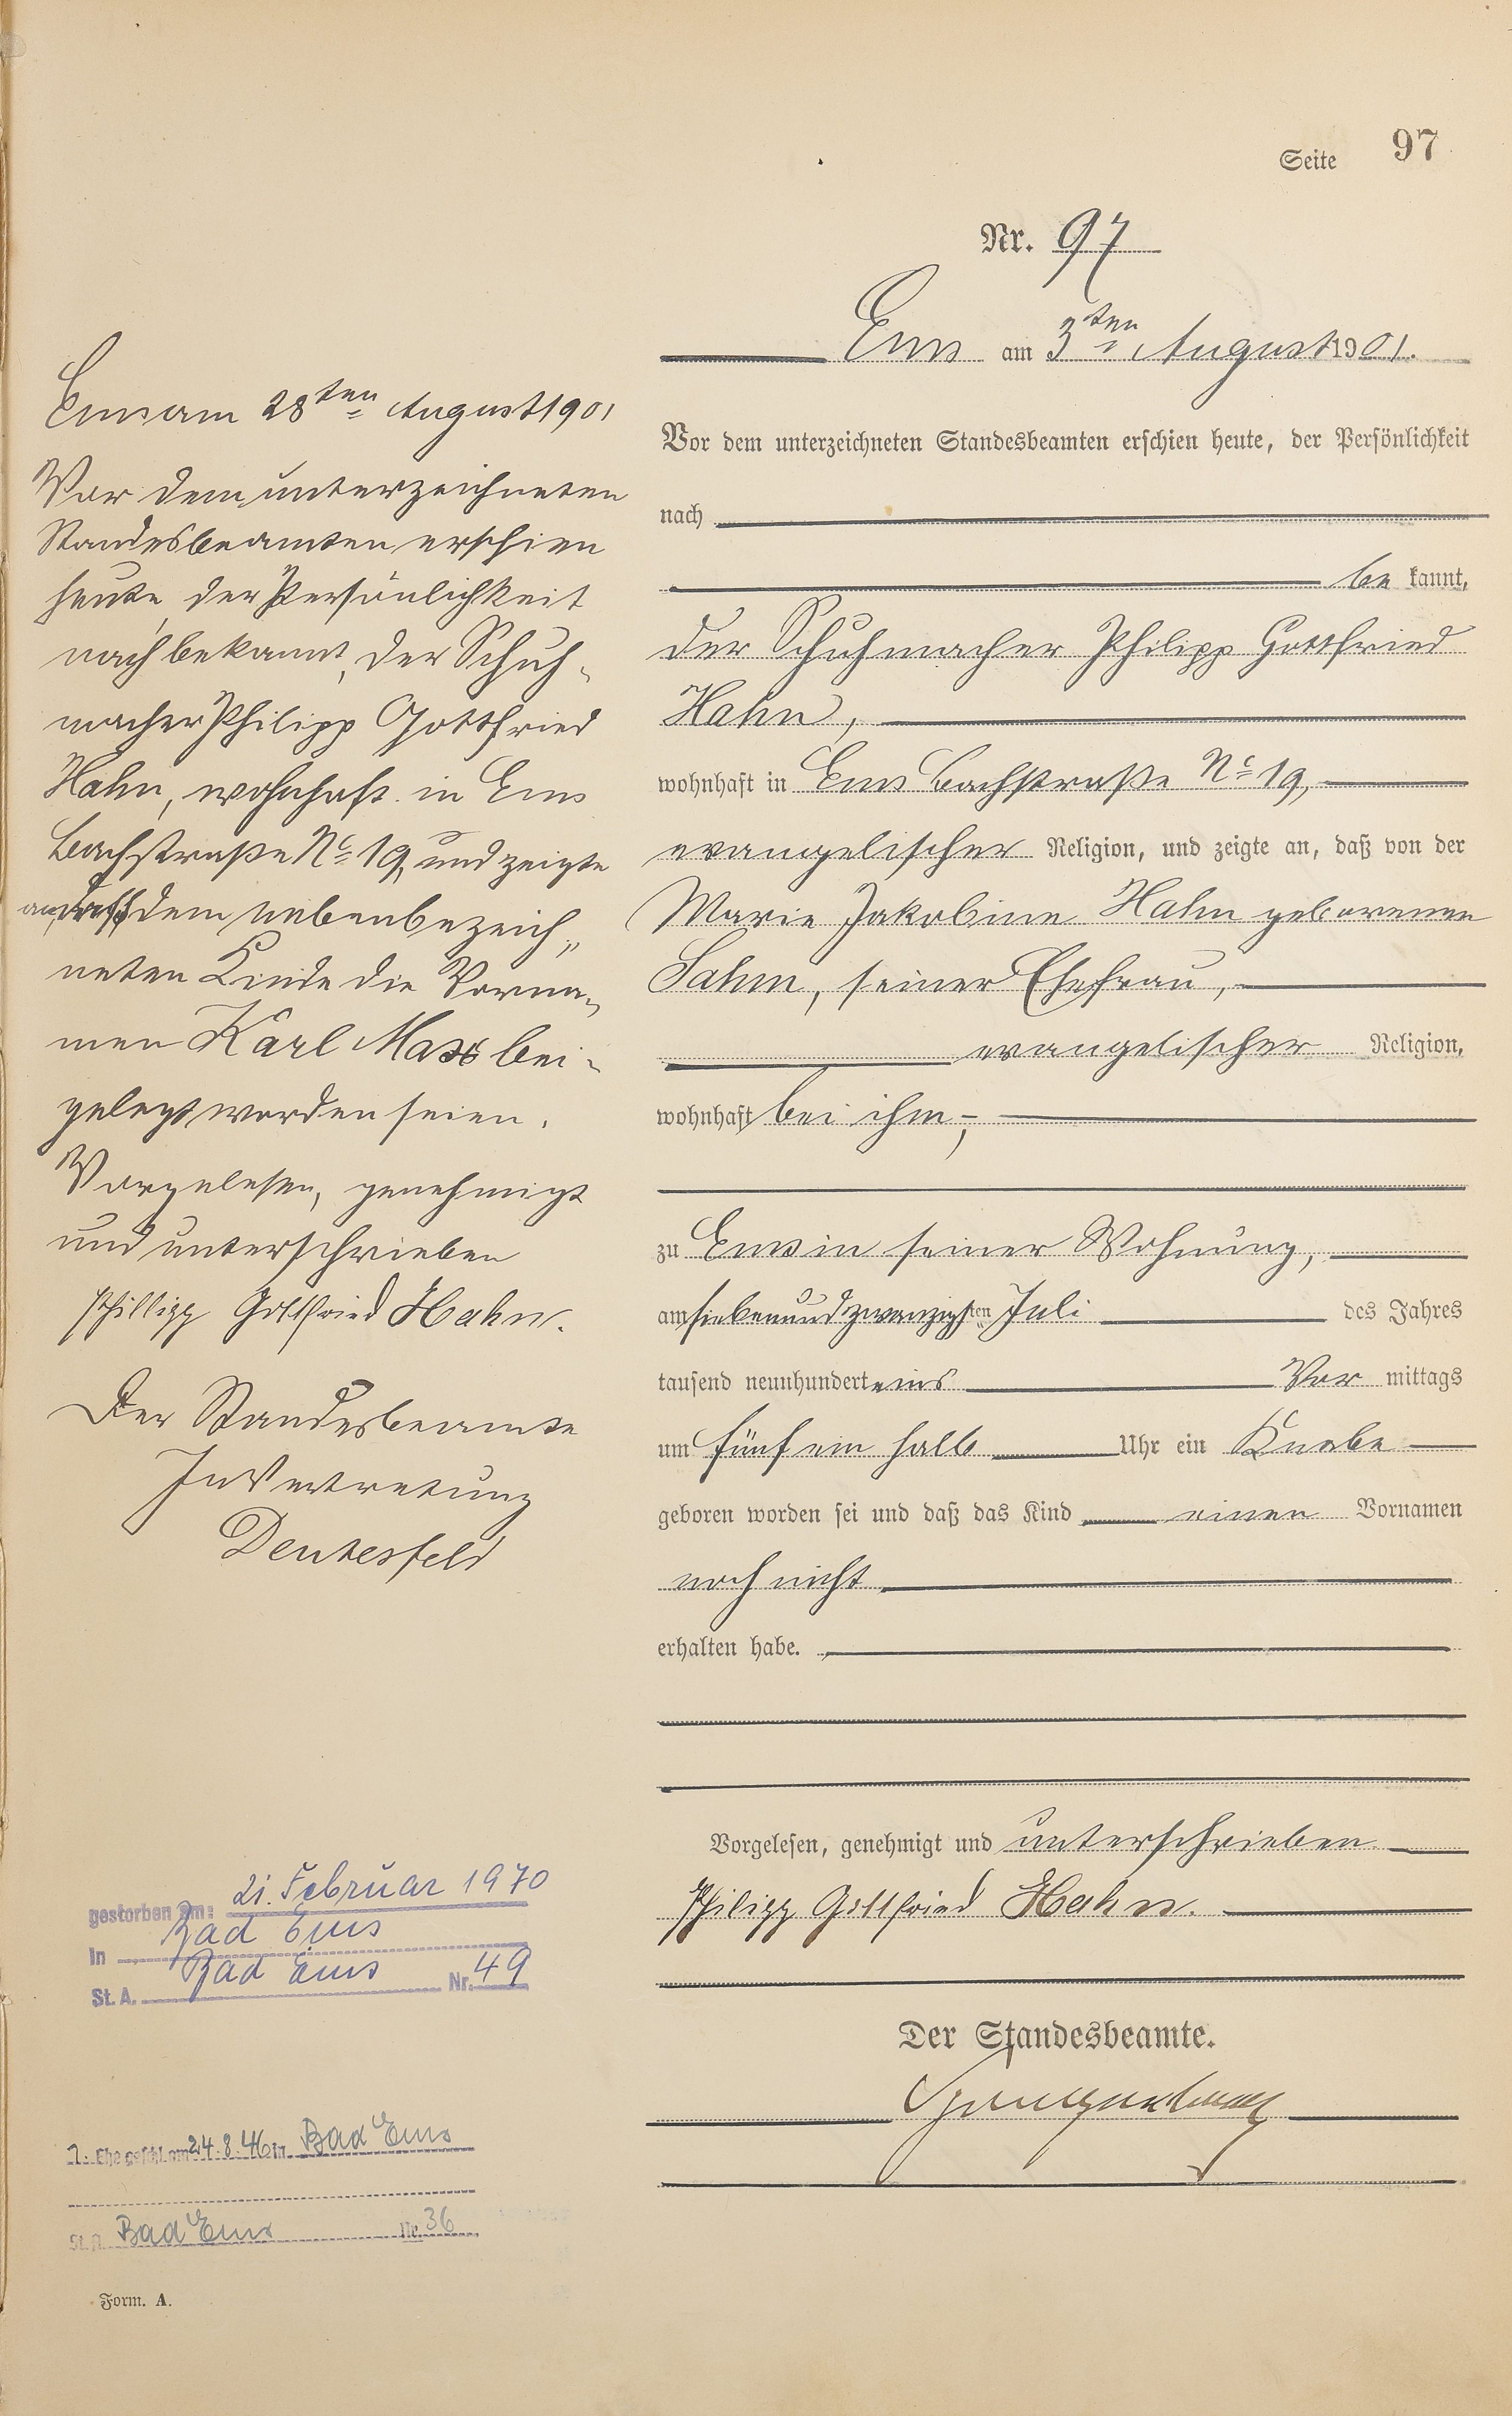 Seite 97
Nr. 97
Ems am 3ten August 1901.
Vor dem unterzeichneten Standesbeamten erschien heute, der Persönlichkeit
nach
be kannt,
der Schuhmacher Philipp Gottfried
Hahn,
wohnhaft in Ems Bachstraße No 19,
evangelischer Religion, und zeigte an, daß von der
Marie Jakobine Hahn geborenen
Sahm, seiner Ehefrau,
evangelischer Religion,
wohnhaft bei ihm,
zu Ems in seiner Wohnung,
am siebenundzwanzigsten Juli des Jahres
tausend neunhundert eins Vor mittags
um fünf ein halb Uhr ein Knabe
geboren worden sei und daß das Kind einen Vornamen
noch nicht
erhalten habe.
Vorgelesen, genehmigt und unterschrieben
Philipp Gottfried Hahn.
Der Standesbeamte.
Ems am 28ten August 1901
Vor dem unterzeichneten
Standesbeamten erschien
heute, der Persönlichkeit
nach bekannt, der Schuh-
macher Philipp Gottfried
Hahn, wohnhaft in Ems
Bachstraße No 19, und zeigte
an, daß dem nebenbezeich-
neten Kinde die Vorna-
men Karl Max bei-
gelegt worden seien.
Vorgelesen, genehmigt
und unterschrieben
Phillipp Gottfried Hahn.
Der Standesbeamte
In Vertretung
Deutesfeld
gestorben am: 21. Februar 1970
In Bad Ems
St. A. Bad Ems Nr. 49
1. Ehe geschl. am 24.8.46 in Bad Ems
St. A. Bad Ems Nr. 36
Form. A.